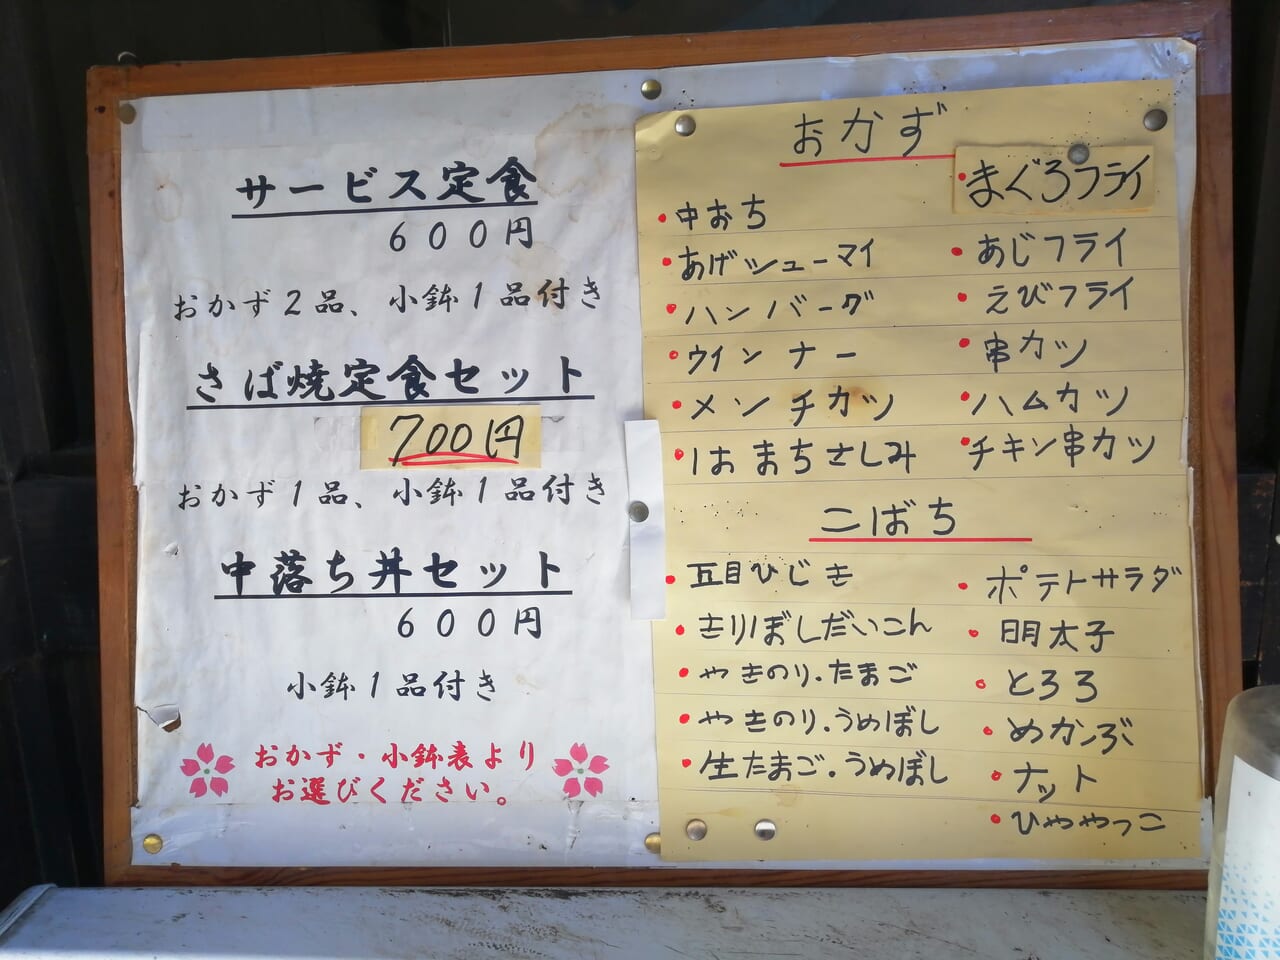 サービス定食
600円
おかず2品、小鉢1品付き
さば焼定食セット
700円
おかず1品、小鉢1品付き
中落ち丼セット
600円
小鉢1品付き
おかず・小鉢表より
お選びください。
おかず
・中おち
・あげシューマイ
・ハンバーグ
・ウインナー
・メンチカツ
・はまちさしみ
・まぐろフライ
・あじフライ
・えびフライ
・串カツ
・ハムカツ
・チキン串カツ
こばち
・五目ひじき
・きりぼしだいこん
・やきのり.たまご
・やきのり.うめぼし
・生たまご.うめぼし
・ポテトサラダ
・明太子
・とろろ
・めかぶ
・ナット
・ひややっこ